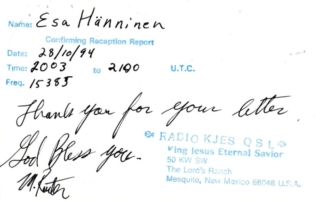 Name: Esa Hänninen
Confirming Reception Report
Date: 28/10/94
Time: 2003 to 2100 U.T.C.
Freq. 15385
Thanks you for your letter.
God Bless you.
RADIO KJES QSL
King Jesus Eternal Savior
50 KW SW
The Lord's Ranch
Mesquite, New Mexico 88048 U.S.A.